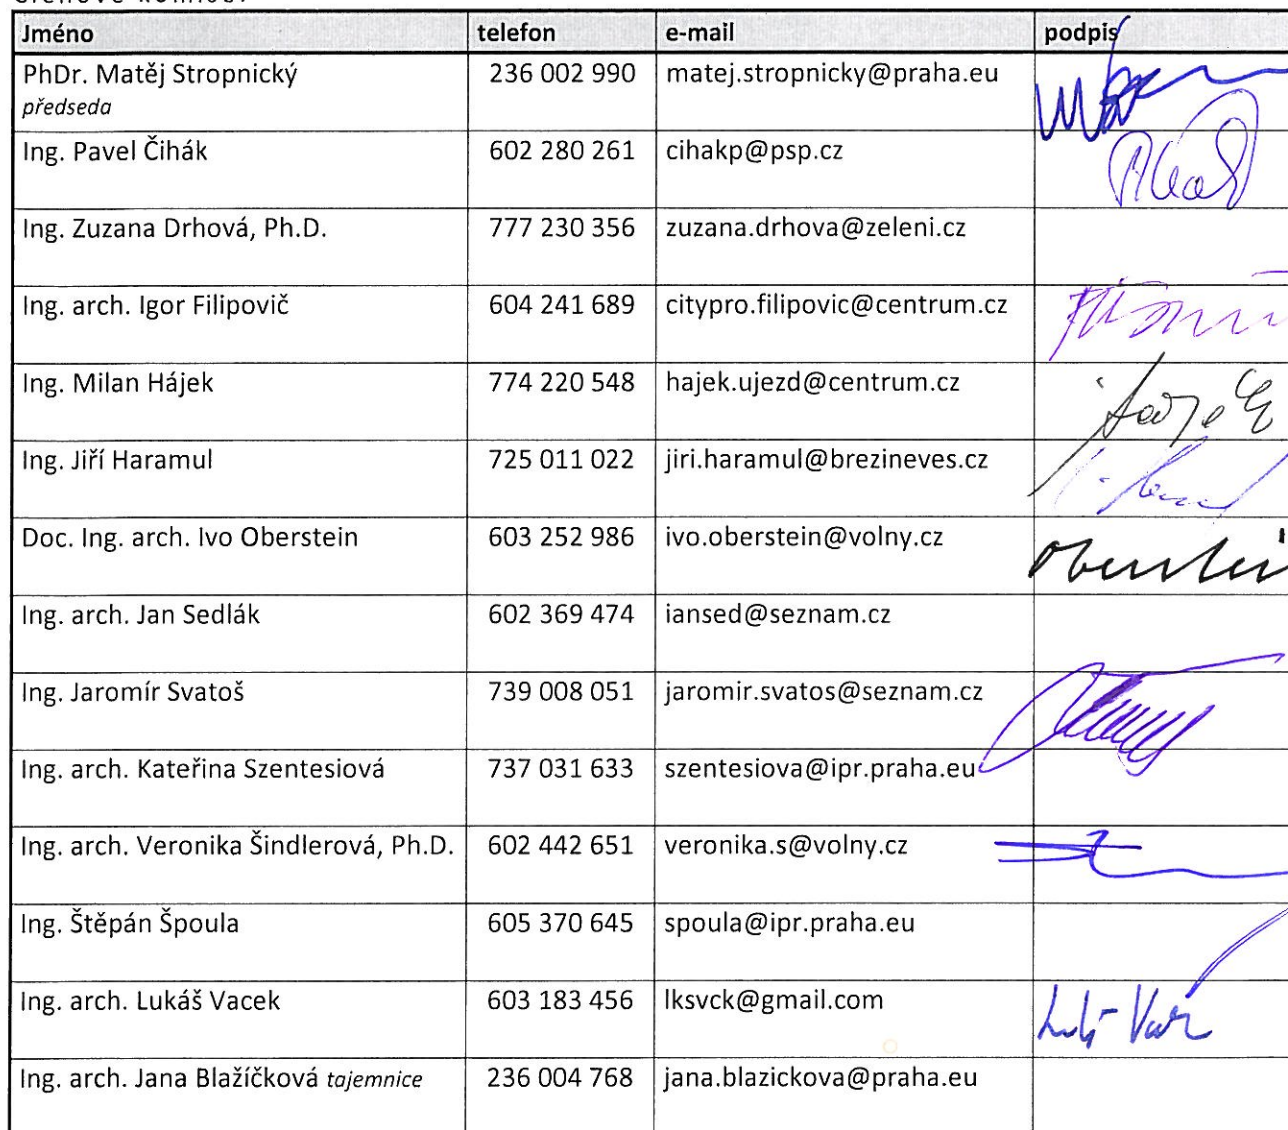 Jméno telefon e-mail podpis
PhDr. Matěj Stropnický 236 002 990 matej.stropnicky@praha.eu
předseda
Ing. Pavel Čihák 602 280 261 cihakp@psp.cz
Ing. Zuzana Drhová, Ph.D. 777 230 356 zuzana.drhova@zeleni.cz
Ing. arch. Igor Filipovič 604 241 689 citypro.filipovic@centrum.cz
Ing. Milan Hájek 774 220 548 hajek.ujezd@centrum.cz
Ing. Jiří Haramul 725 011 022 jiri.haramul@brezineves.cz
Doc. Ing. arch. Ivo Oberstein 603 252 986 ivo.oberstein@volny.cz
Ing. arch. Jan Sedlák 602 369 474 iansed@seznam.cz
Ing. Jaromír Svatoš 739 008 051 jaromir.svatos@seznam.cz
Ing. arch. Kateřina Szentesiová 737 031 633 szentesiova@ipr.praha.eu
Ing. arch. Veronika Šindlerová, Ph.D. 602 442 651 veronika.s@volny.cz
Ing. Štěpán Špoula 605 370 645 spoula@ipr.praha.eu
Ing. arch. Lukáš Vacek 603 183 456 lksvck@gmail.com
Ing. arch. Jana Blažíčková tajemnice 236 004 768 jana.blazickova@praha.eu